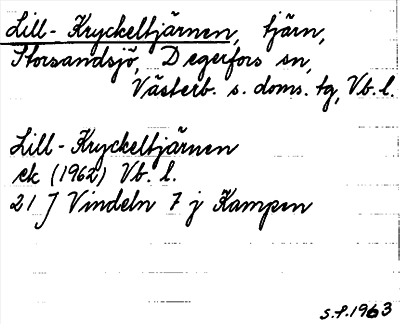 Lill-Kryckeltjärnen, tjärn,
Storsandsjö, Degerfors sn,
Västerb. s. doms. tg, Vb. l.
Lill-Kryckeltjärnen
ek (1962) Vb. l.
21 J Vindeln 7 j Kampen
S.f. 1963